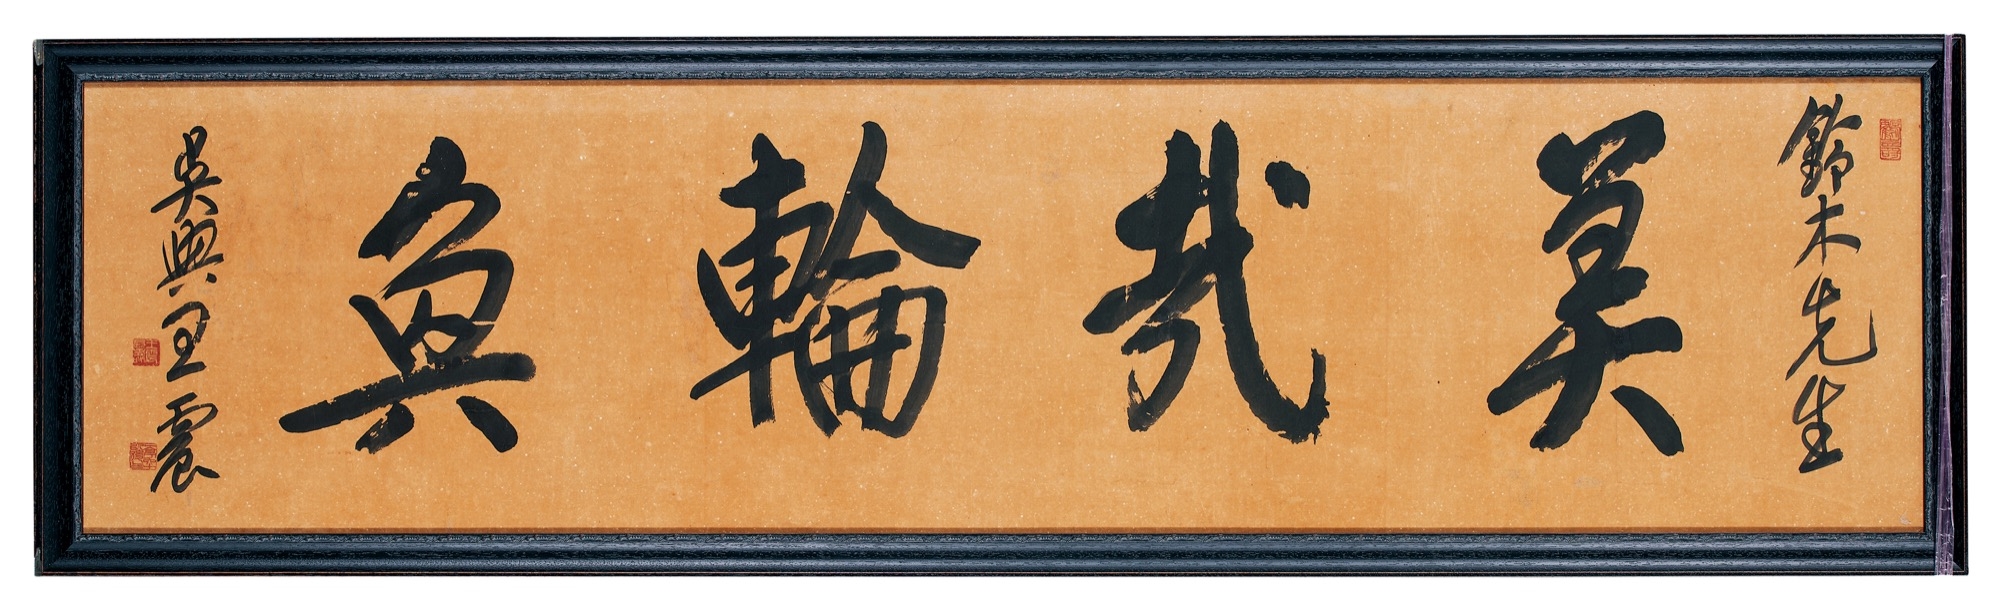 鈴木先生
美哉輪奐
吳興王震